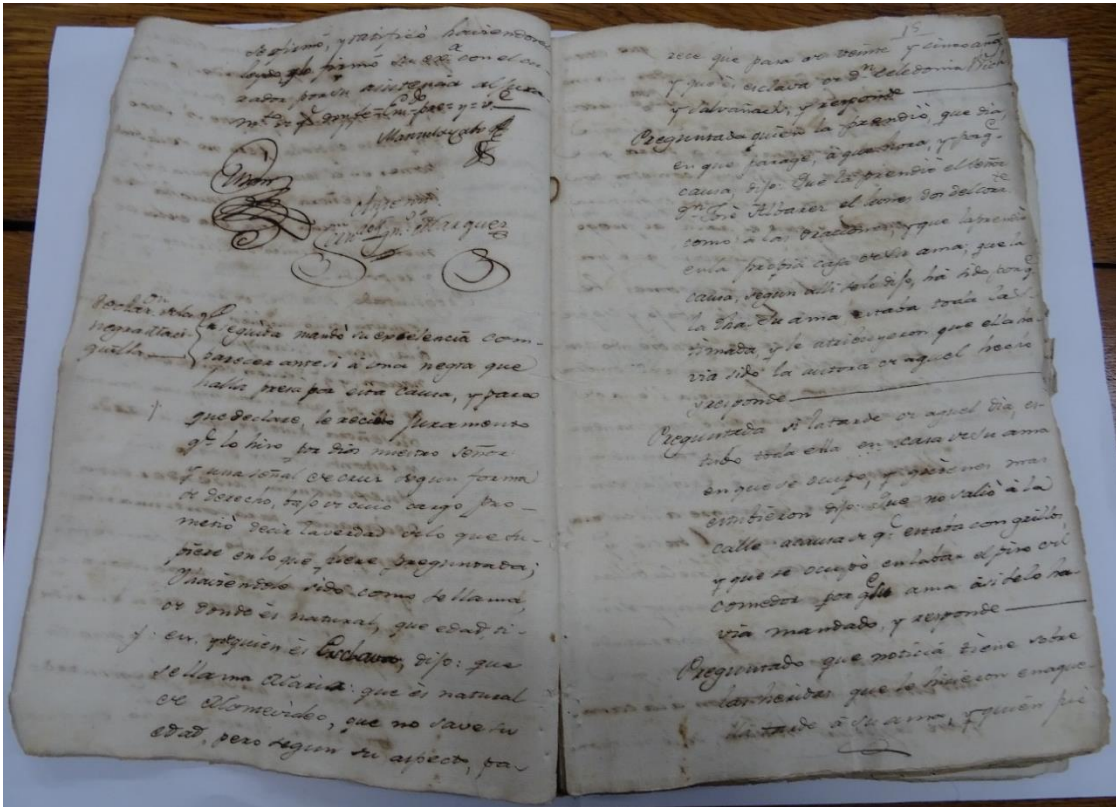 se afirmó, y ratificó haviendosele
leydo, y lo firmó su exª. con el cu-
rador por su asistencia al jura-
mto. de q. doy fe
Ante mi
Marquez
Declaron. de la
negra Mari-
quilla
Seguida mandó su exselencia com-
parecer ante si á una negra que
halla presa por esta causa, y para
que declare, le recivió Juramento
q. lo hiso por dios nuestro señor
y una señal de cruz segun forma
de derecho, vajo de cuio cargo pro-
metió decir la verdad delo que su-
piere en lo que fuere preguntada;
Y haviendolo sido como se llama,
de donde és natural, que edad ti-
ene, y de quien és Esclava, dijo: que
se llama Maria: que és natural
de Montevideo, que no save su
edad, pero segun su aspecto, pa-
15
rece que para de veinte y cinco años
y que és esclava de Dª. Celedonia Wich
y Salvañach, y responde
Preguntada quien la prendió, que dia,
en que parage, á que hora, y por q.
causa, dijo: Que la prendió el señor
Dn. José Albarez el lunes dos del corte.
como á las oraciones y que la prendió
en la propia casa de su ama, que la
causa, segun alli se le dijo, ha sido, porq.
la dha. su ama estaba toda las-
timada, y le atribuyeron que ella ha-
via sido la autora de aquel hecho
y responde
Preguntada si la tarde de aquel dia, es-
tubo toda ella en casa de su ama
en que se ocupó, y quienes mas
estubieron dijo: Que no salió á la
calle acausa de q. estaba con grillos,
y que se ocupó en labar el piso del
comedor por q. su ama asi se lo ha-
via mandado, y responde
Preguntado que noticia tiene sobre
las heridas que se hicieron en aque-
lla tarde á su ama, y quien fue